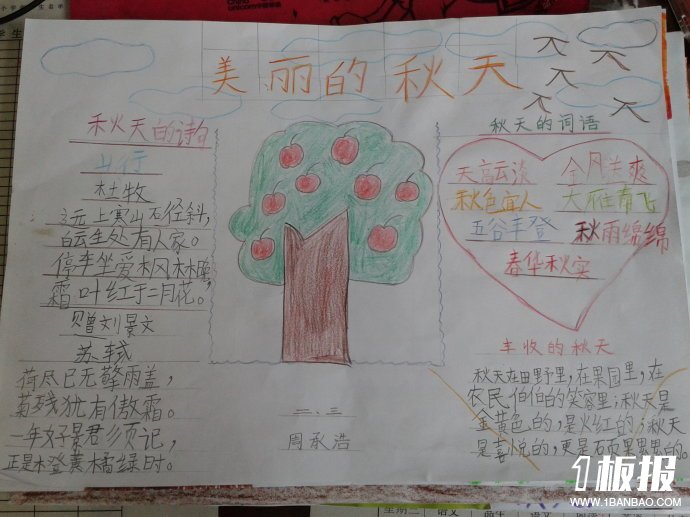 美丽的秋天
秋天的诗句
山行
杜牧
远上寒山石径斜,
白云生处有人家。
停车坐爱枫林晚
霜叶红于二月花。
赠刘景文
苏轼
荷尽已无擎雨盖,
菊残犹有傲霜。
一年好景君须记,
正是本登黄橘绿时。
二、三
周承浩
秋天的词语
天高云淡 金风送爽
秋色宜人 大雁南飞
五谷丰登 秋雨绵绵
春华秋实
丰收的秋天
秋天在田野里,在果园里,在
农民伯伯的笑容里;秋天是
金黄色的,是火红的;秋天
是喜悦的,更是硕果累累的。
1板报
WWW.1BANBAO.COM
China
unicom中国